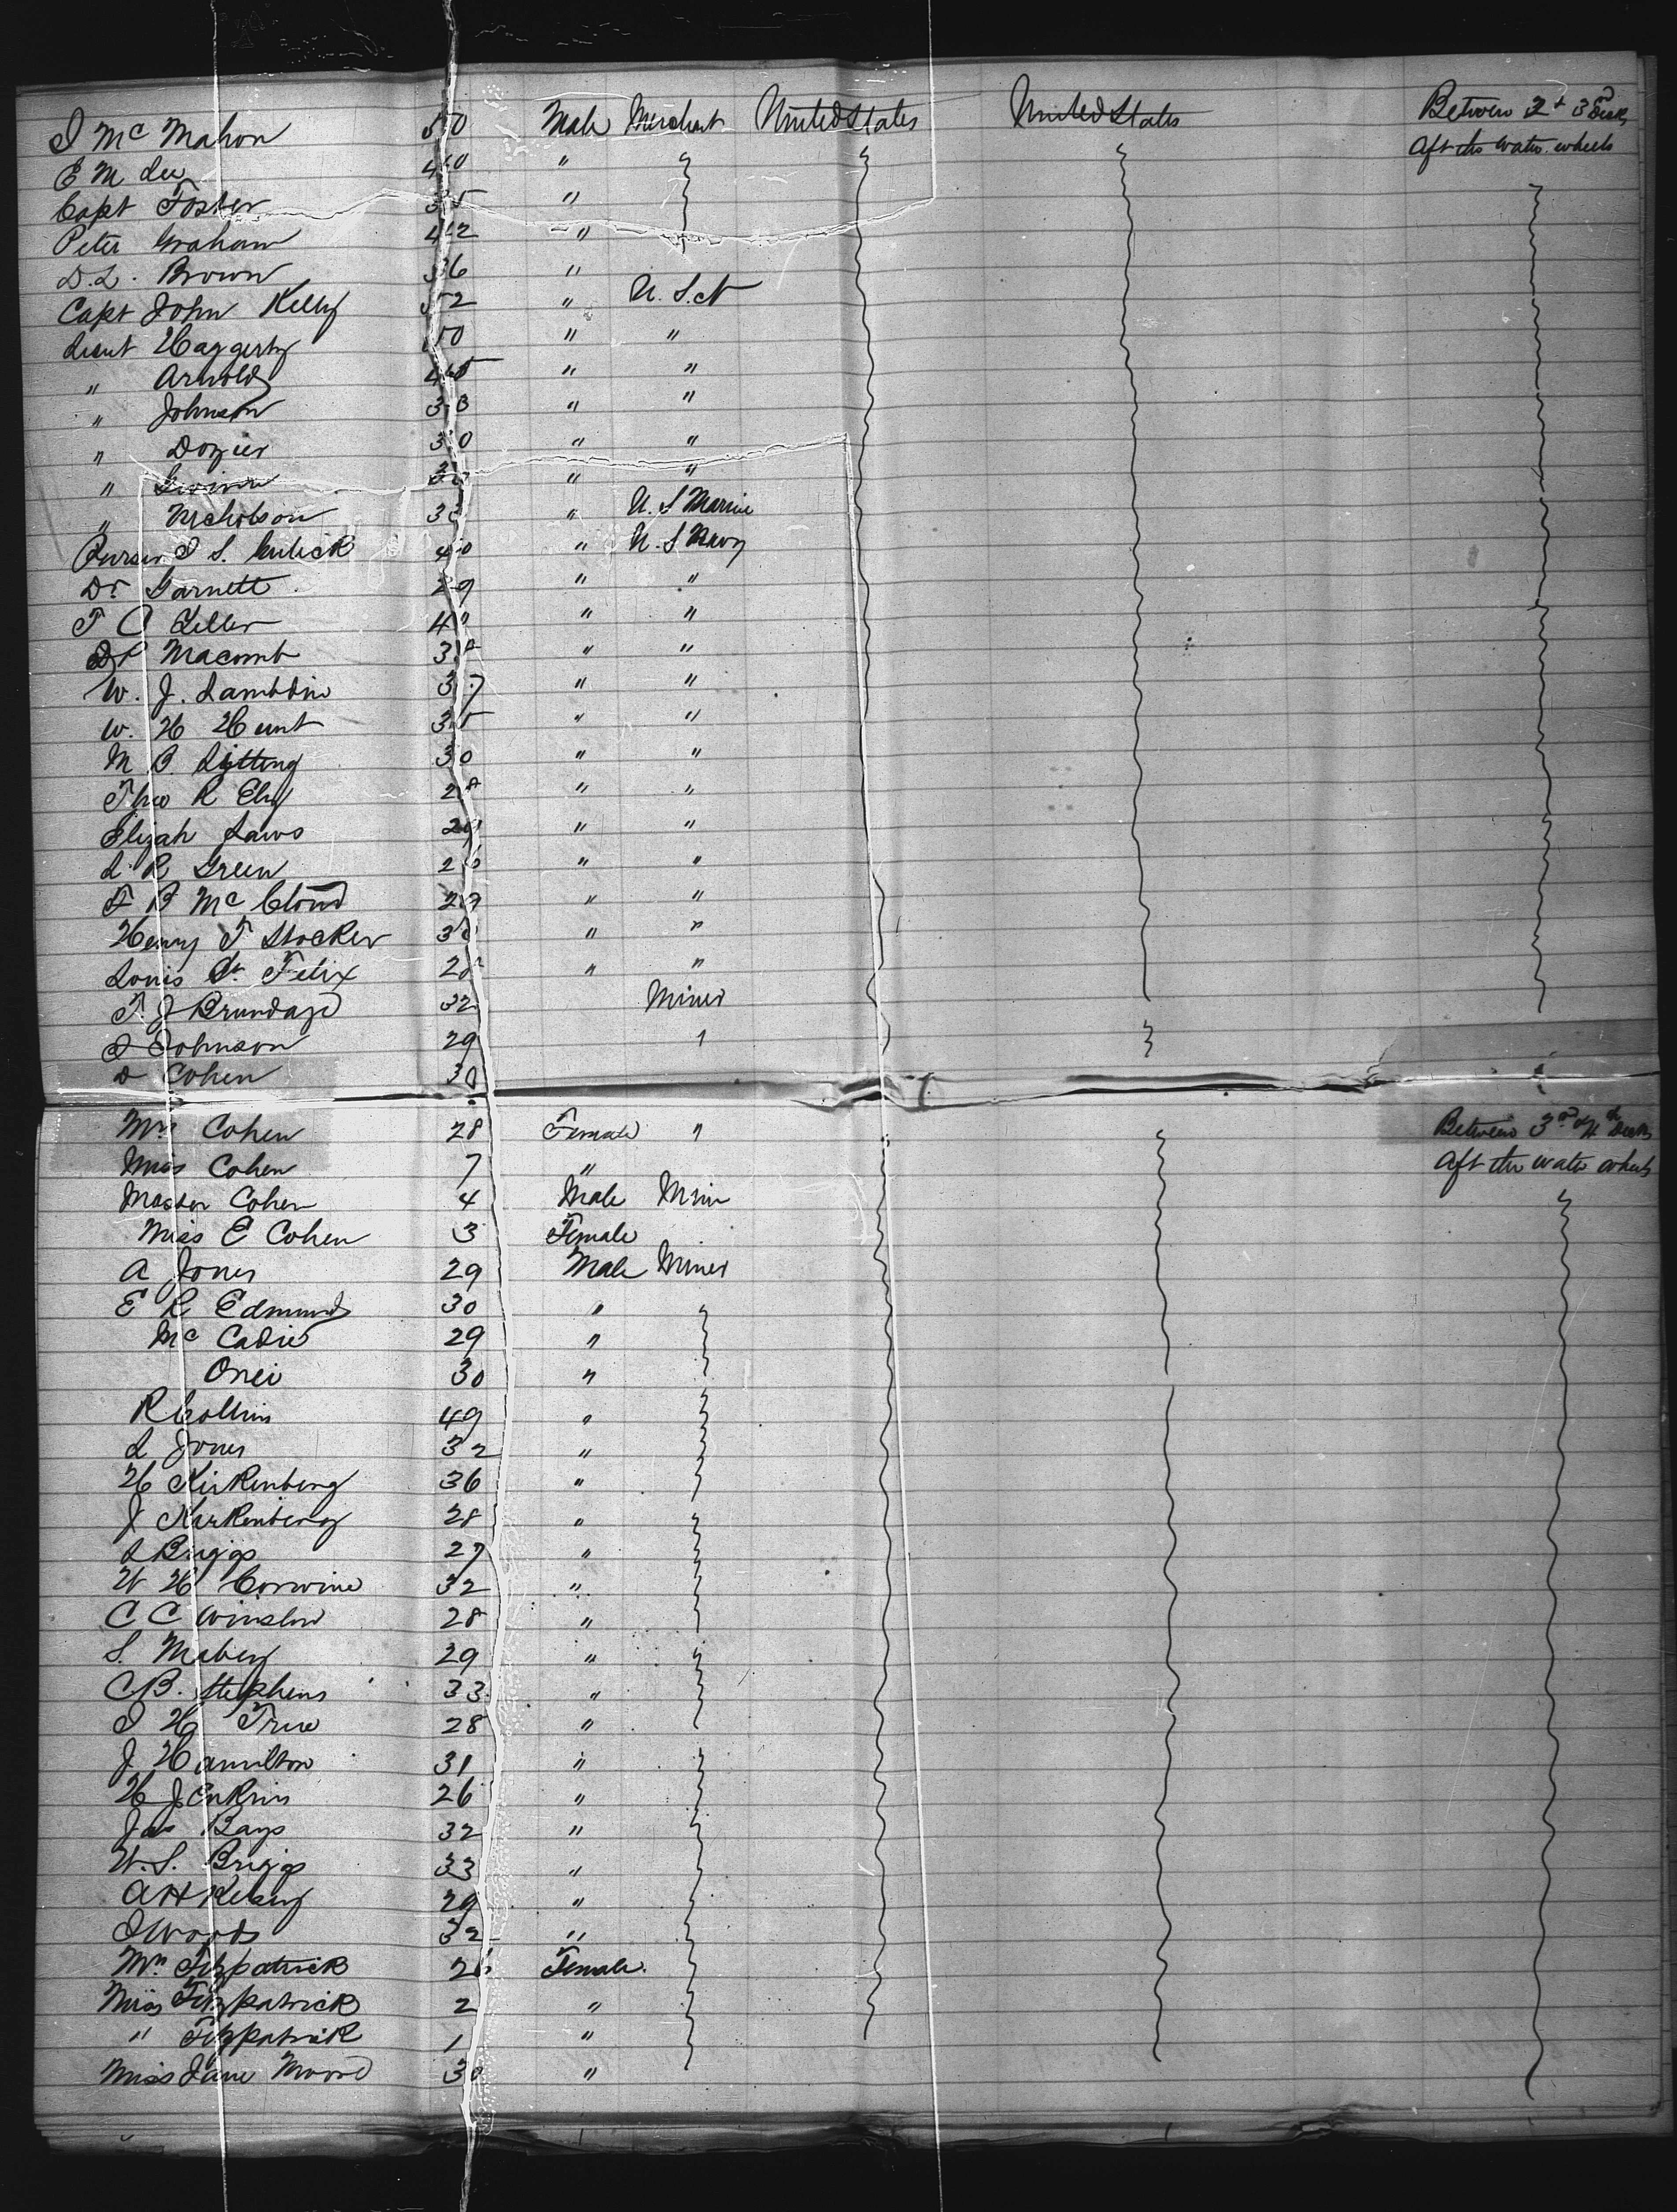 I Mc Mahon 50 Male Merchant United States United States Between 2 & 3rd Decks
E M Lee 40 " Aft the water wheels
Capt Foster 35 "
Peter Graham 42 "
D. L. Brown 36 "
Capt John Kelly 52 " U. S. N
Lieut Haggerty 50 " "
" Arnold 45 " "
" Johnson 33 " "
" Dozier 30 " "
" " "
" Nicholson " U. S Marine
Purser I S. Gulick 40 " U. S Navy
Dr Garnett 29 " "
T A " "
Macomb " "
W. J. Lambdin 37 " "
W. H Hunt 35 " "
M B. 30 " "
Theo R Ely " "
Elijah Laws " "
L. R Green " "
Mc Cloud " "
Henry T Stocker " "
Louis St. Felix " "
T. J Brundage 32 Miner
I Johnson 29 "
D Cohen 30
Mrs Cohen 28 Female " Between 3rd & 4th Decks
Miss Cohen 7 " Aft the water wheels
Master Cohen 4 Male Miner
Miss E Cohen 3 Female
A Jones 29 Male Miner
E R Edmunds 30 "
Mc Cadie 29 "
30 "
R Collins 49 "
L Jones 32 "
H Kirkenberg 36 "
J Kirkenberg 28 "
L Briggs 27 "
W H Corwine 32 "
C C Winslow 28 "
S. Mabery 29 "
C B. Stephens 33 "
I H True 28 "
J Hamilton 31 "
H Jenkins 26 "
Jas Bays 32 "
W. S. Briggs 33 "
A H Kelsey 29 "
I Woods 32 "
Mrs Fitzpatrick Female
Miss Fitzpatrick 2 "
" Fitzpatrick 1 "
Miss Jane Moore 30 "